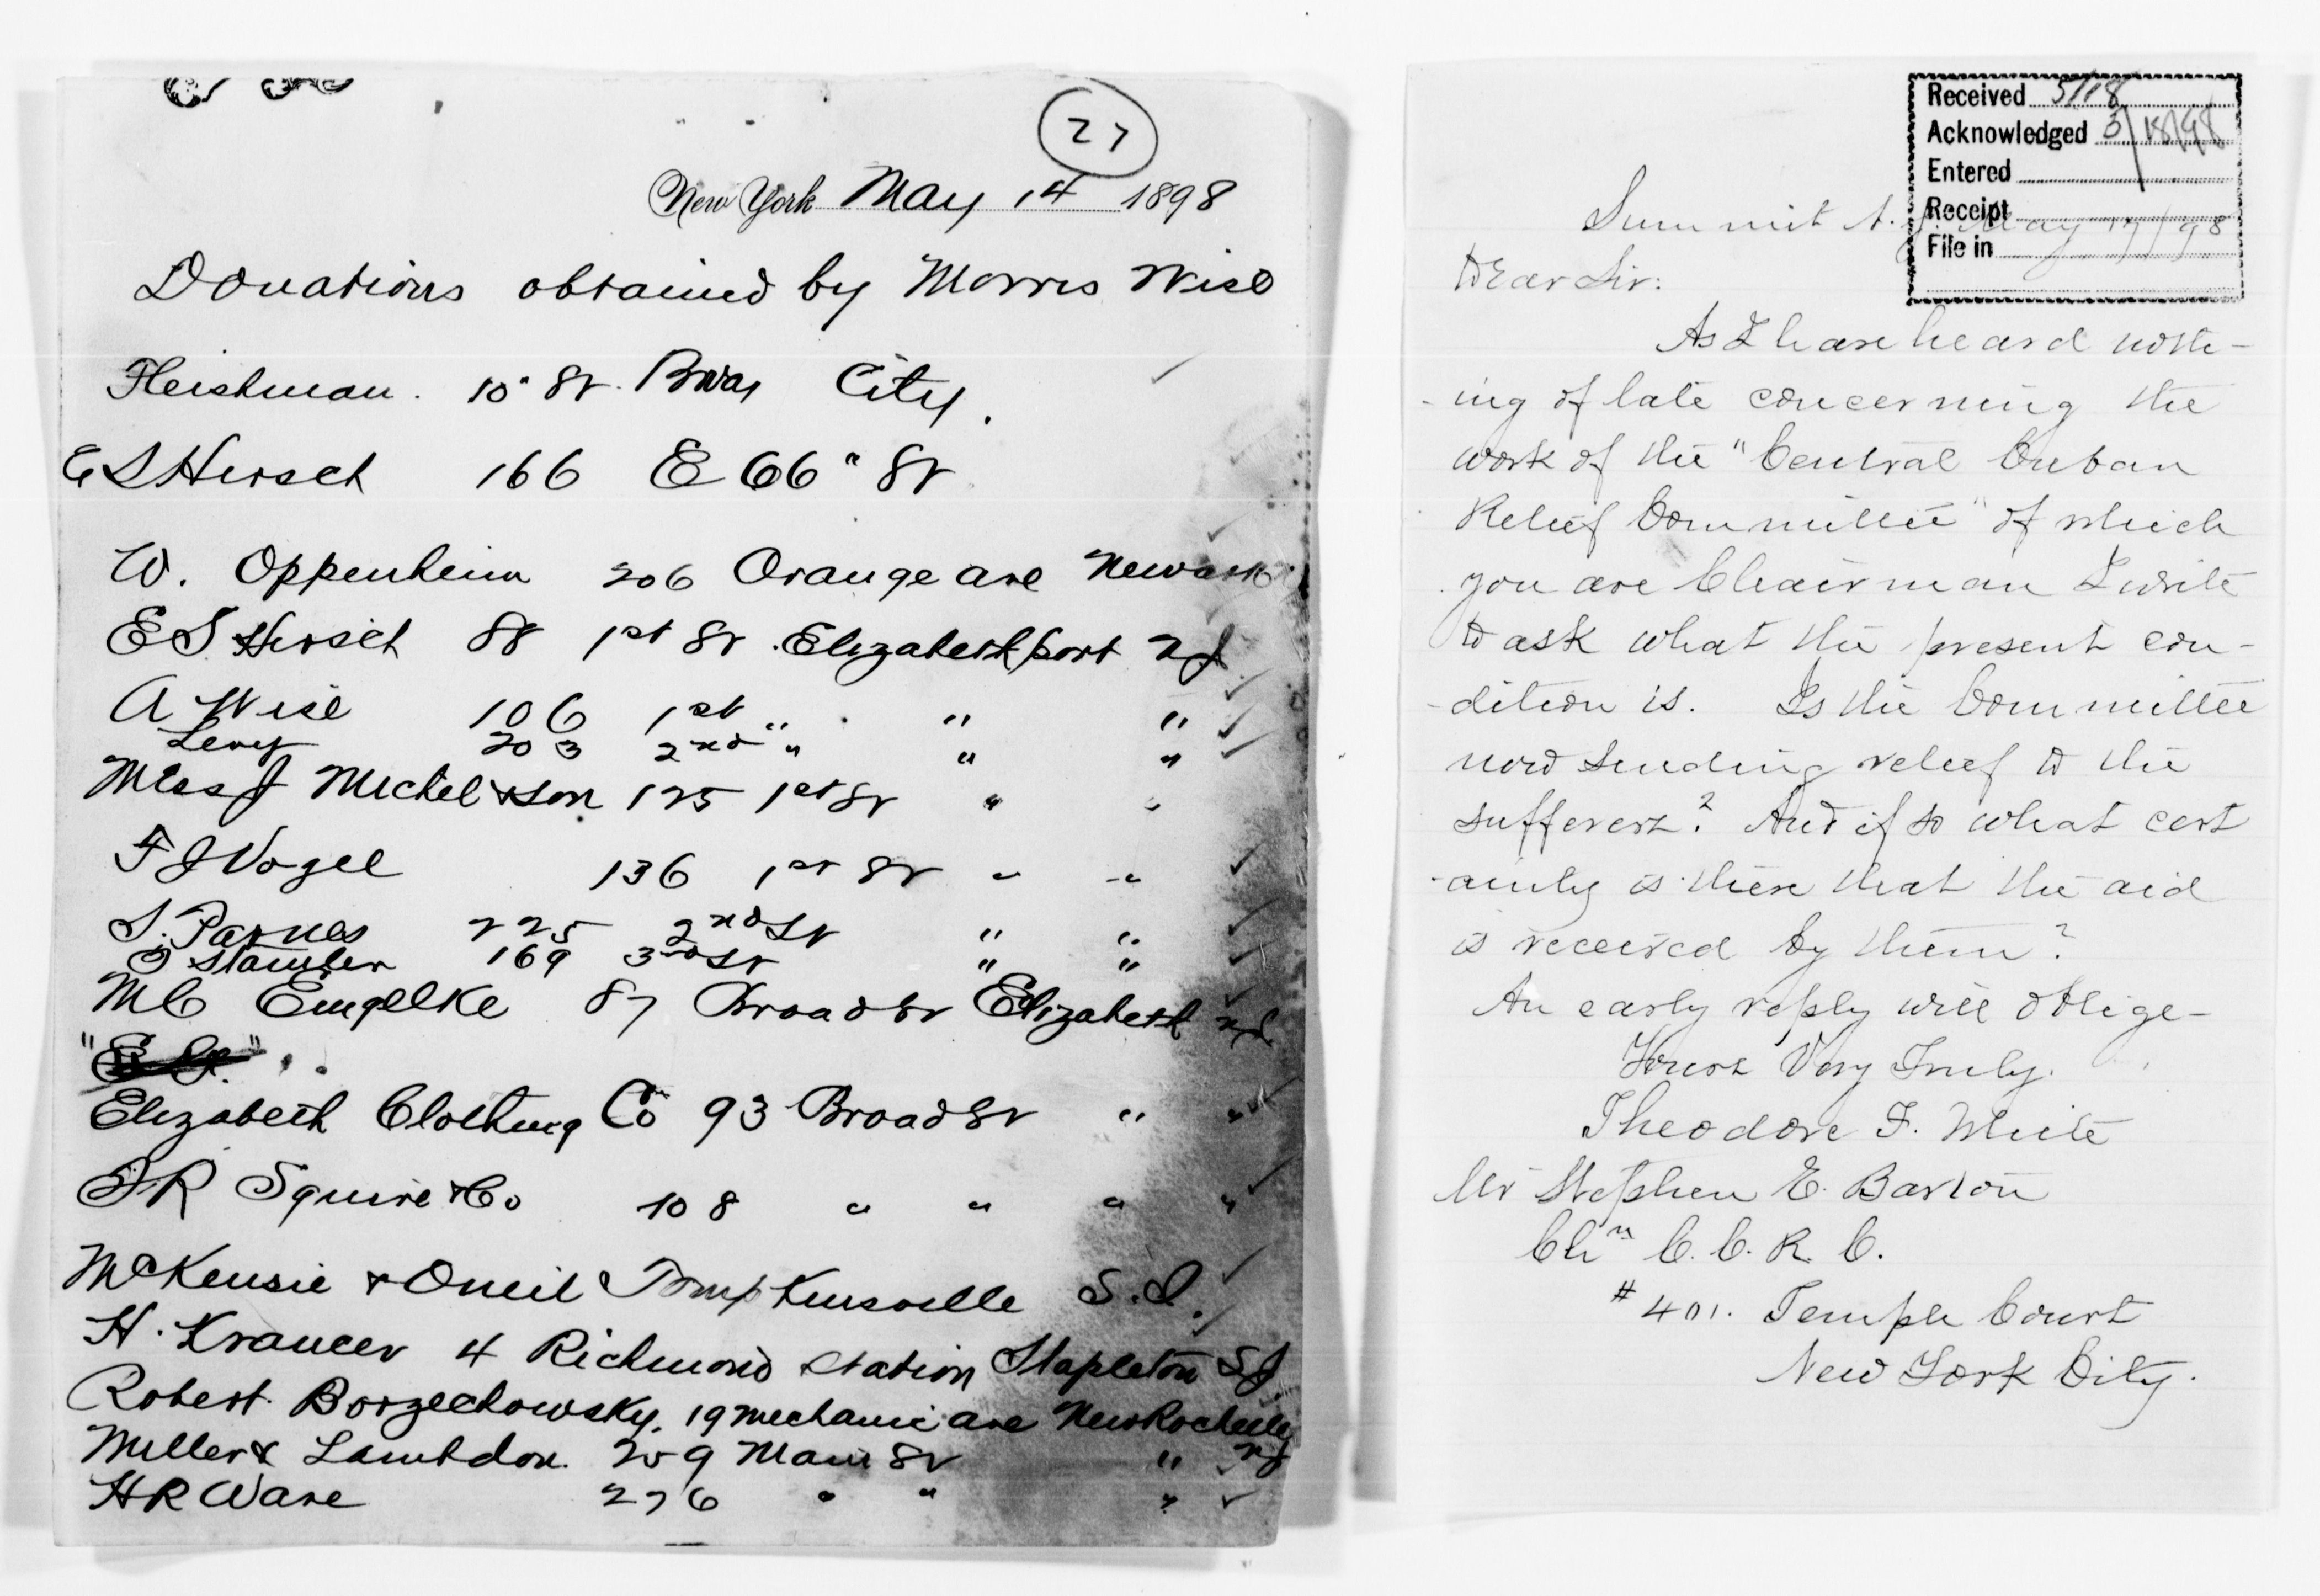 27
New York May 14 1898
Donations obtained by Morris Wise
Fleishman. 10" St. Bway City.
E S Hirsch 166 E 66" St
W. Oppenheim 206 Orange ave Newark
E S Hirsch 88 1st St. Elizabethport N J
A Wise 106 1st " " "
Levy 203 2nd " " "
J Michel & Son 125 1st St " "
F J Vogel 136 1st St " "
S. Parnes 225 2nd St " "
O Stamler 169 3rd St " "
M C Emgelke 87 Broad St Elizabeth N J
Elizabeth Clothing Co 93 Broad St " "
J R Squire & Co 108 " " " "
McKensie & Oneil Tompkinsville S. I.
H. Krancer 4 Richmond Station Stapleton S I
Robert Borzechowsky. 19 Mechanic ave New Rochelle
Miller & Lambdon 259 Main St " N J
H R Ware 276 " " "
Received 5/18
Acknowledged 5/18/98
Entered
Receipt
File in
Summit N. J. May 17/98
Dear Sir:
As I have heard noth-
-ing of late concerning the
work of the "Central Cuban
Relief Committee" of which
you are Chairman I write
to ask what the present con-
-dition is. Is the Committee
now sending relief to the
sufferers? And if so what cert
-ainty is there that the aid
is received by them?
An early reply will oblige-
Yours Very Truly.
Theodore F. White
Mr Stephen E. Barton
Chn C. C. R. C.
# 401. Temple Court
New York City.